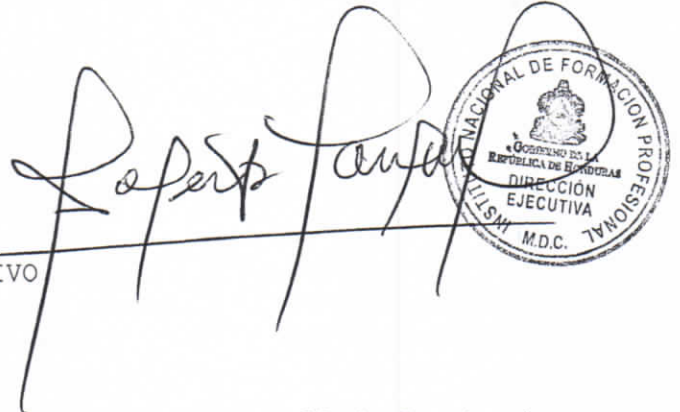 INSTITUTO NACIONAL DE FORMACION PROFESIONAL
GOBIERNO DE LA
REPÚBLICA DE HONDURAS
DIRECCIÓN
EJECUTIVA
M.D.C.
IVO